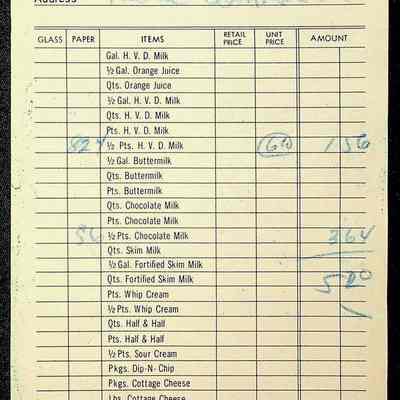 Address
GLASS PAPER ITEMS RETAIL PRICE UNIT PRICE AMOUNT
Gal. H. V. D. Milk
½ Gal. Orange Juice
Qts. Orange Juice
½ Gal. H. V. D. Milk
Qts. H. V. D. Milk
Pts. H. V. D. Milk
½ Pts. H. V. D. Milk
½ Gal. Buttermilk
Qts. Buttermilk
Pts. Buttermilk
Qts. Chocolate Milk
Pts. Chocolate Milk
½ Pts. Chocolate Milk 364
Qts. Skim Milk
½ Gal. Fortified Skim Milk
Qts. Fortified Skim Milk
Pts. Whip Cream
½ Pts. Whip Cream
Qts. Half & Half
Pts. Half & Half
½ Pts. Sour Cream
Pkgs. Dip-N- Chip
Pkgs. Cottage Cheese
Lbs. Cottage Cheese